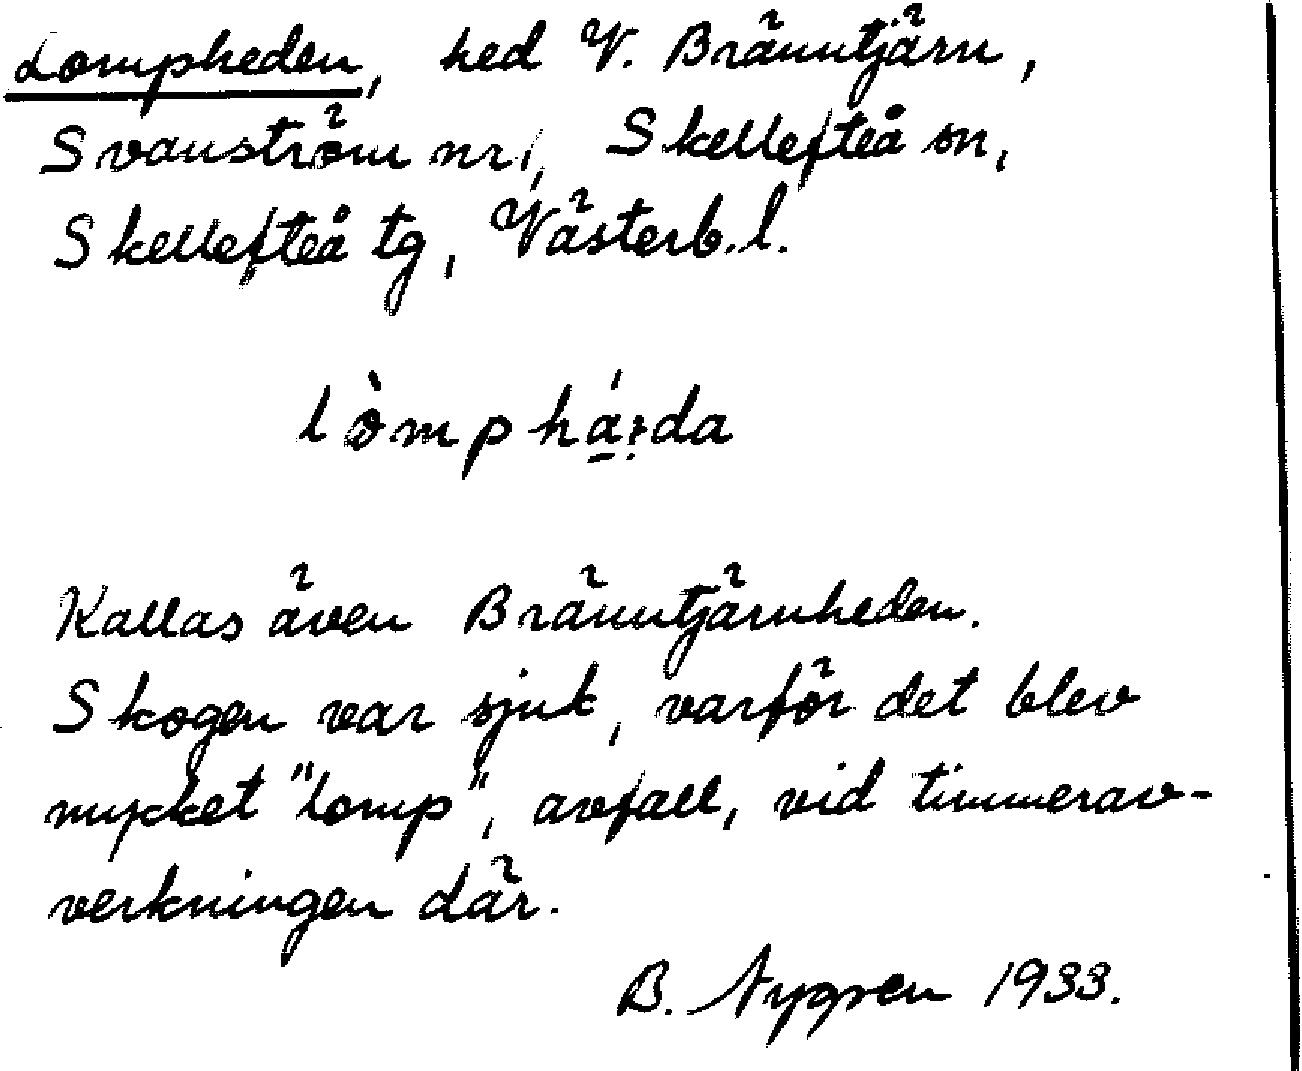 Lompheden, hed V. Bränntjärn,
Svanström nr 1, Skellefteå sn,
Skellefteå tg, Västerb. l.
lòmphá̠:da
Kallas även Bränntjärnheden.
Skogen var sjuk, varför det blev
mycket "lomp", avfall, vid timmerav-
verkningen där.
B. Nygren 1933.